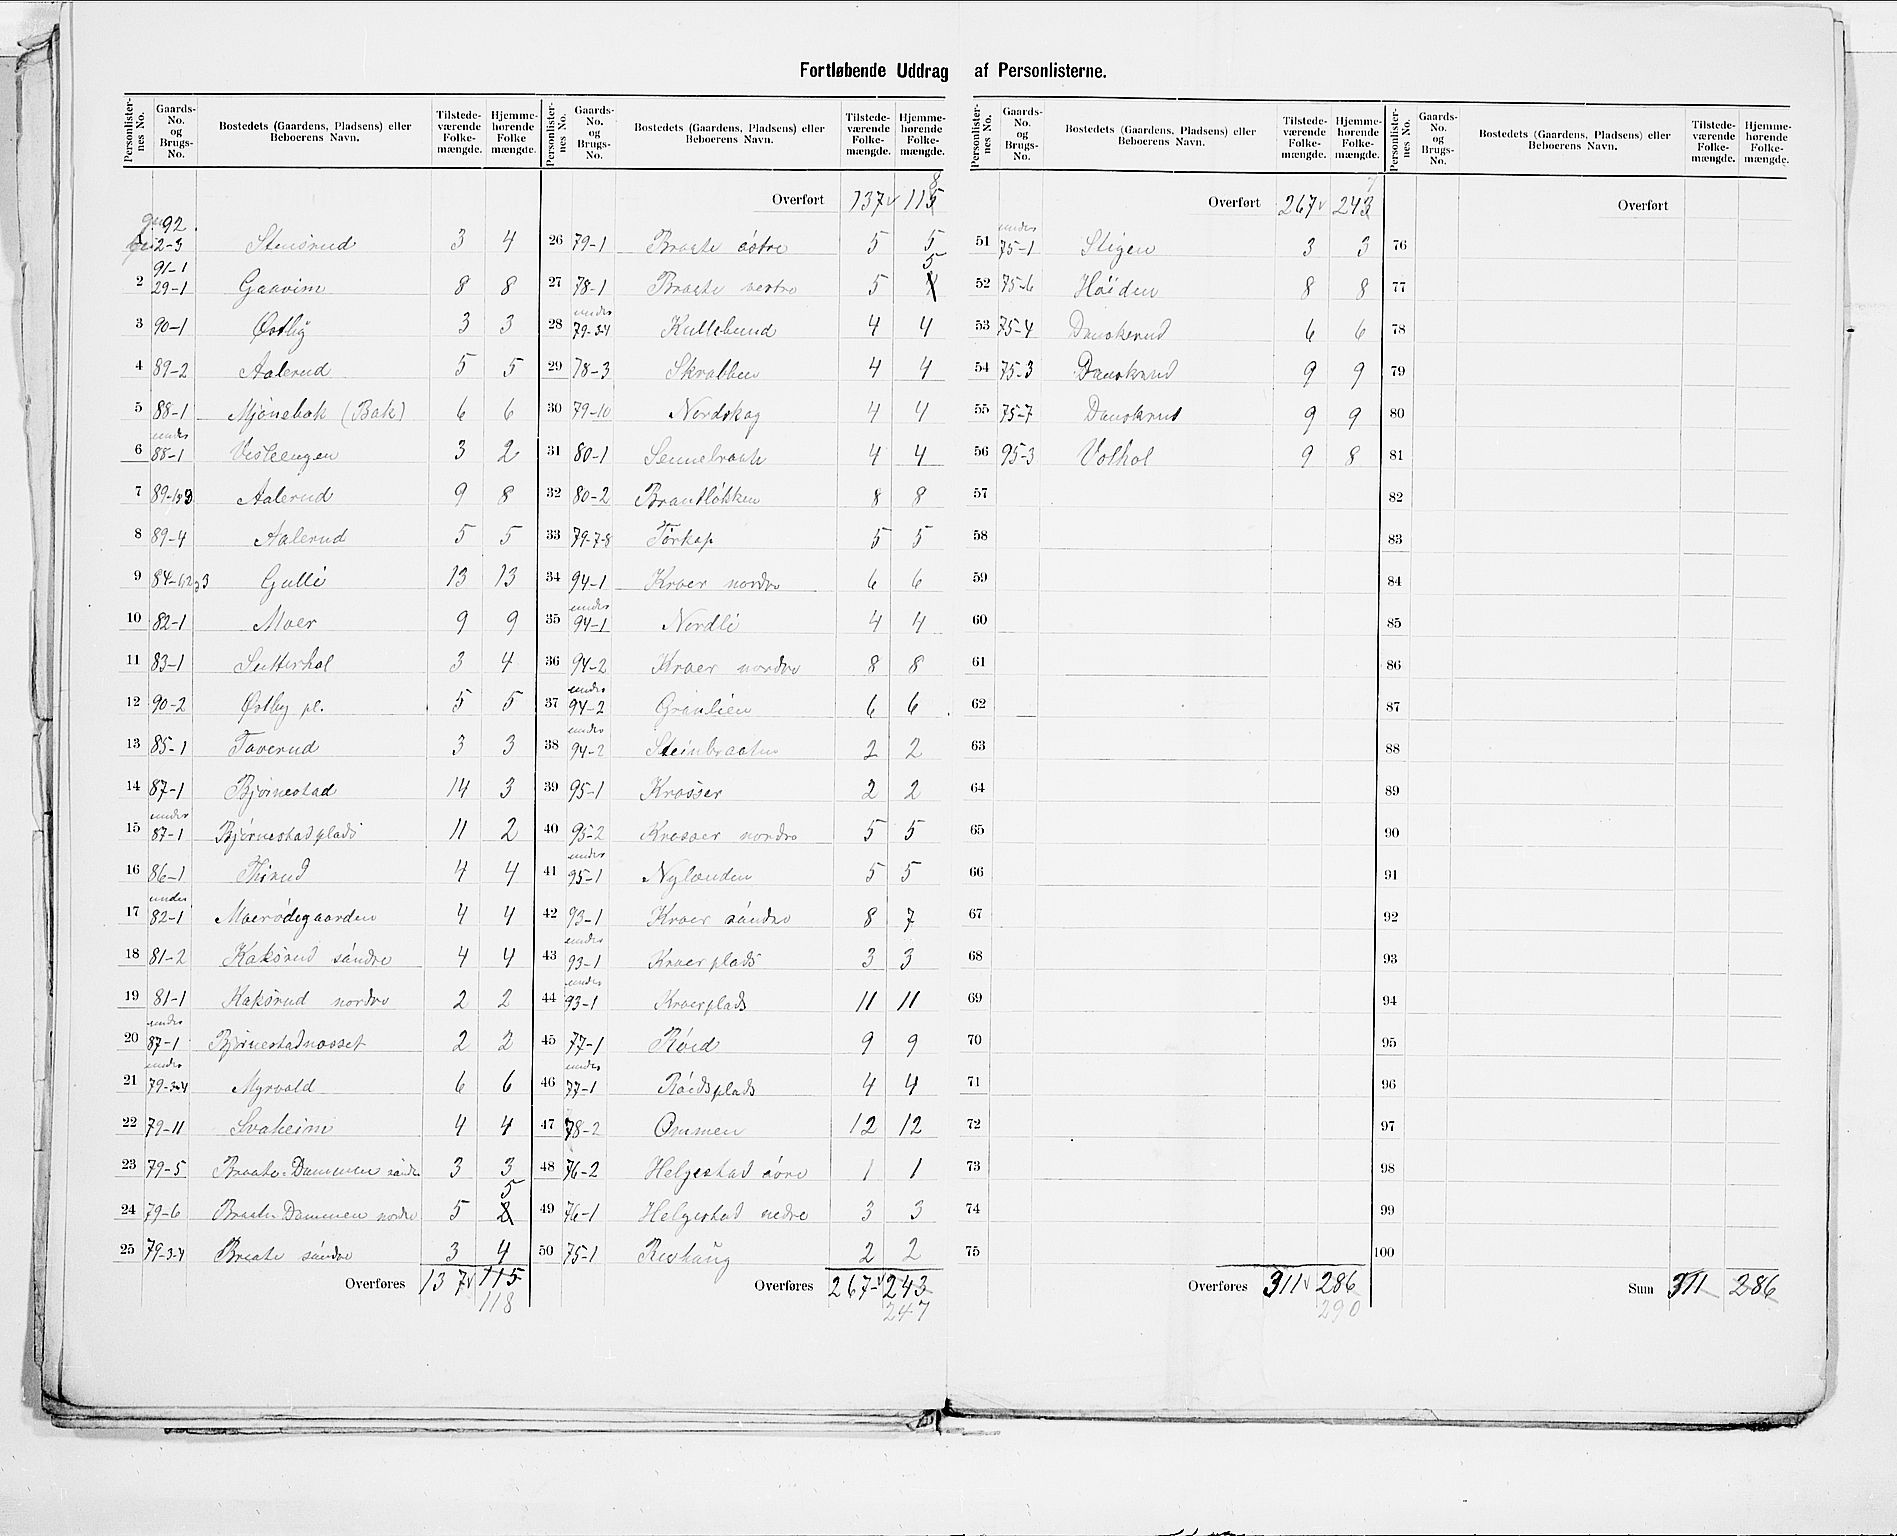 Fortløbende Uddrag af Personlisterne.
Personlisternes No. | Gaards-No. og Brugs-No. | Bostedets (Gaardens, Pladsens) eller Beboerens Navn. | Tilstedeværende Folkemængde. | Hjemmehørende Folkemængde.
92 2-3 Stensrud 3 4
2 91-1 29-1 Gaavim 8 8
3 90-1 Østby 3 3
4 89-2 Aalerud 5 5
5 88-1 Mjønebak (Bak) 6 6
6 under 88-1 Vesleengen 3 2
7 89-1 Aalerud 9 8
8 89-4 Aalerud 5 5
9 84-1,2,3 Gulli 13 13
10 82-1 Moer 9 9
11 83-1 Sutterhol 3 4
12 90-2 Østby pl. 5 5
13 85-1 Taverud 3 3
14 87-1 Bjørnestad 14 3
15 under 87-1 Bjørnestadplads 11 2
16 86-1 Thirud 4 4
17 under 82-1 Moerødegaarden 4 4
18 81-2 Kaksrud søndre 4 4
19 81-1 Kaksrud nordre 2 2
20 under 87-1 Bjørnestadnæsset 2 2
21 under 79-3-4 Myrvold 6 6
22 79-11 Svaheim 4 4
23 79-5 Braate-Dammen søndre 3 3
24 79-6 Braate-Dammen nordre 5 2 5
25 79-3-4 Braate søndre 3 4
Overføres 137 115
118
Overført 137 115 8
26 79-1 Braate østre 5 5
27 78-1 Braate vestre 5 4 5
28 under 79-3-4 Kullebund 4 4
29 78-3 Skrabben 4 4
30 79-10 Nordskog 4 4
31 80-1 Sennebraate 4 4
32 80-2 Brautløkken 8 8
33 79-7-8 Torkop 5 5
34 94-1 Kroer nordre 6 6
35 under 94-1 Nordli 4 4
36 94-2 Kroer nordre 8 8
37 under 94-2 Granlien 6 6
38 under 94-2 Steinbraaten 2 2
39 95-1 Krosser 2 2
40 95-2 Krosser nordre 5 5
41 under 95-1 Nylænden 5 5
42 93-1 Kroer søndre 8 7
43 under 93-1 Kroerplads 3 3
44 under 93-1 Kroerplads 11 11
45 77-1 Røid 9 9
46 under 77-1 Røidsplads 4 4
47 78-2 Ommen 12 12
48 76-2 Helgestad øvre 1 1
49 76-1 Helgestad nedre 3 3
50 75-1 Revhaug 2 2
Overføres 267 243
247
Overført 267 243 7
51 under 75-1 Stigen 3 3
52 75-6 Høiden 8 8
53 75-4 Danskerud 6 6
54 75-3 Danskerud 9 9
55 75-7 Danskrud 9 9
56 95-3 Volhol 9 8
57
58
59
60
61
62
63
64
65
66
67
68
69
70
71
72
73
74
75
Overføres 311 286
290
Overført
76
77
78
79
80
81
82
83
84
85
86
87
88
89
90
91
92
93
94
95
96
97
98
99
100
Sum 311 286